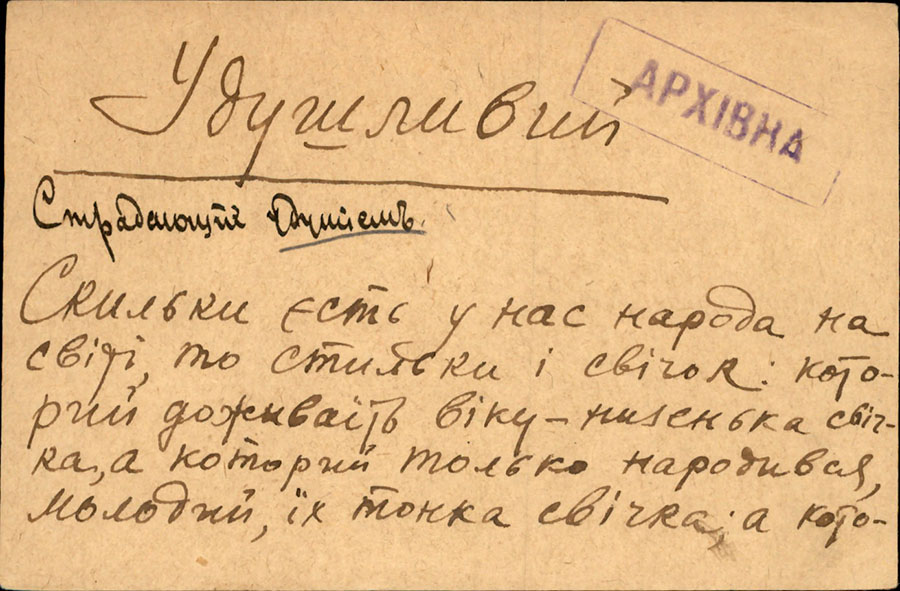 Удушливий
АРХІВНА
Страдающій удушіемъ.
Скильки єсть у нас народа на
світі, то стильки і свічок: кото-
рий доживаїть віку – низенька свіч-
ка, а которий только народився,
молодий, їх тонка свічка; а кото-